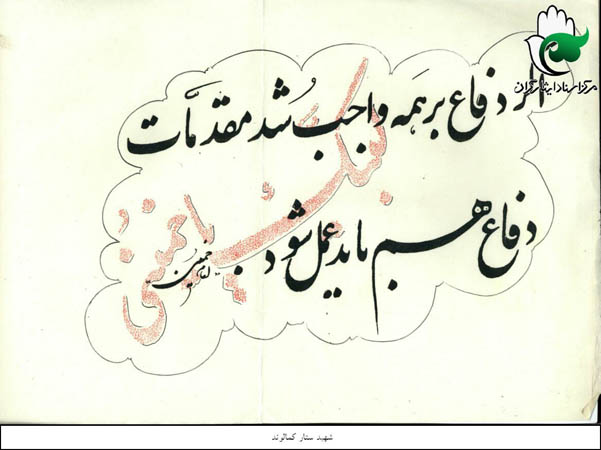 مرکز اسناد ایثارگران
اگر دفاع بر همه واجب شد مقدمّات
دفاع هم باید عمل شود
امام خمینی
لبیک یا خمینی
شهید ستار کمالوند